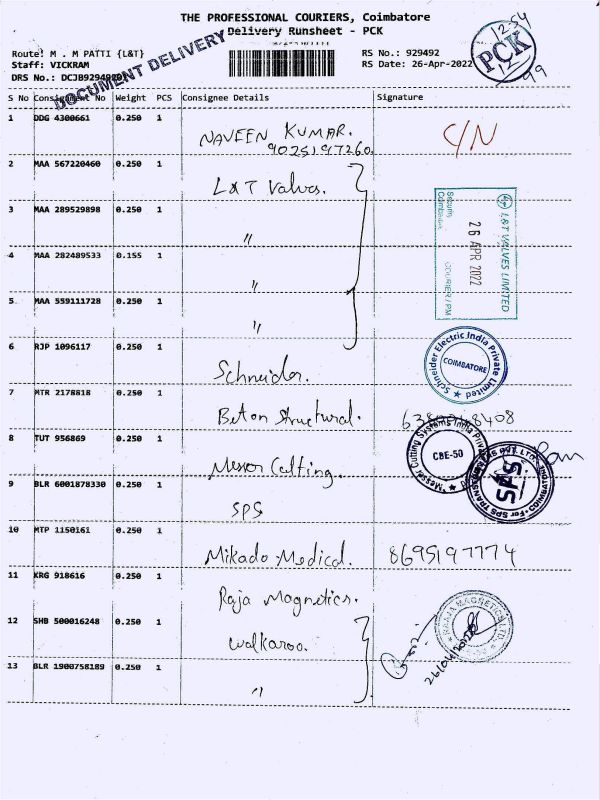 THE PROFESSIONAL COURIERS, Coimbatore
Delivery Runsheet - PCK
Route: M . M PATTI {L&T}
Staff: VICKRAM
RS No.: 929492
RS Date: 26-Apr-2022
DOCUMENT DELIVERY
PCK
12-54
99
S No Consignment No Weight PCS Consignee Details Signature
1 DDG 4300661 0.250 1 NAVEEN KUMAR. C/N
9025197260.
2 MAA 567220460 0.250 1 L&T Valves.
3 MAA 289529898 0.250 1 "
4 MAA 282489533 0.155 1 "
5 MAA 559111728 0.250 1 "
L&T VALVES LIMITED
26 APR 2022
COURIER / PM
6 RJP 1096117 0.250 1 Schneider.
Schneider Electric India Private Limited
COIMBATORE
7 MTR 2178818 0.250 1 Beton Structural.
8 TUT 956869 0.250 1 Messer Cutting.
Messer Cutting Systems India Private
CBE-50
9 BLR 6001878330 0.250 1 SPS
For SPS
SPS
COIMBATORE
10 MTP 1150161 0.250 1 Mikado Medical. 8695197774
11 KRG 918616 0.250 1 Raja Magnetics.
RAJA MAGNETICS LTD
12 SHB 500016248 0.250 1 Walkaroo.
13 BLR 1900758189 0.250 1 "